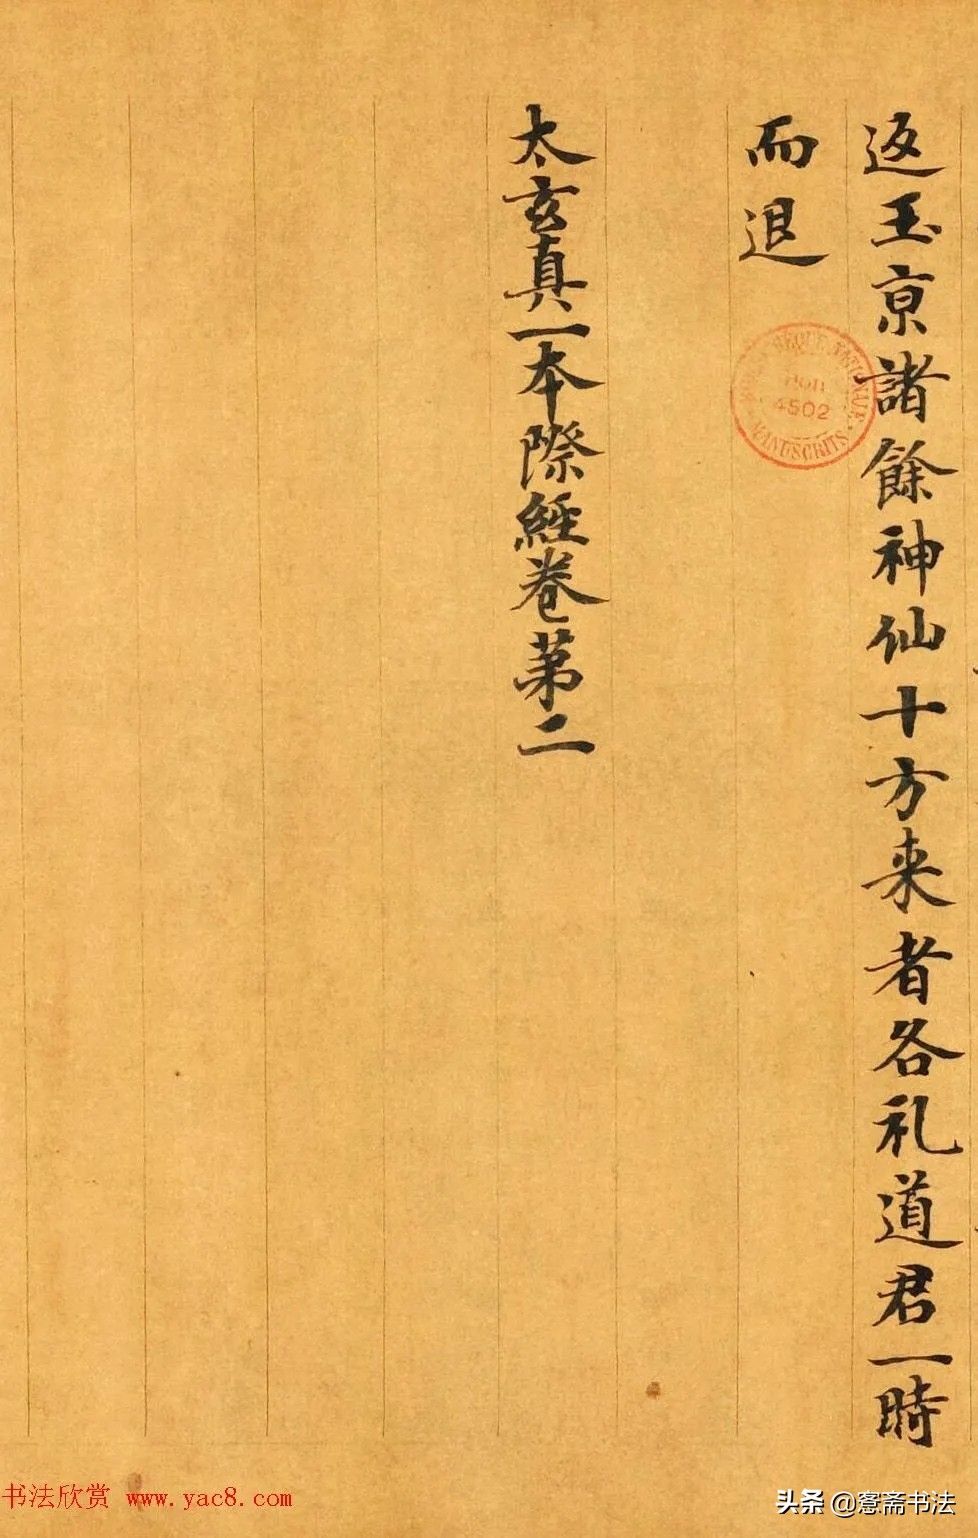 返玉京諸餘神仙十方来者各礼道君一時
而退
太玄真一本際經卷第二
4502
MANUSCRITS
书法欣赏 www.yac8.com
头条 @窓斋书法